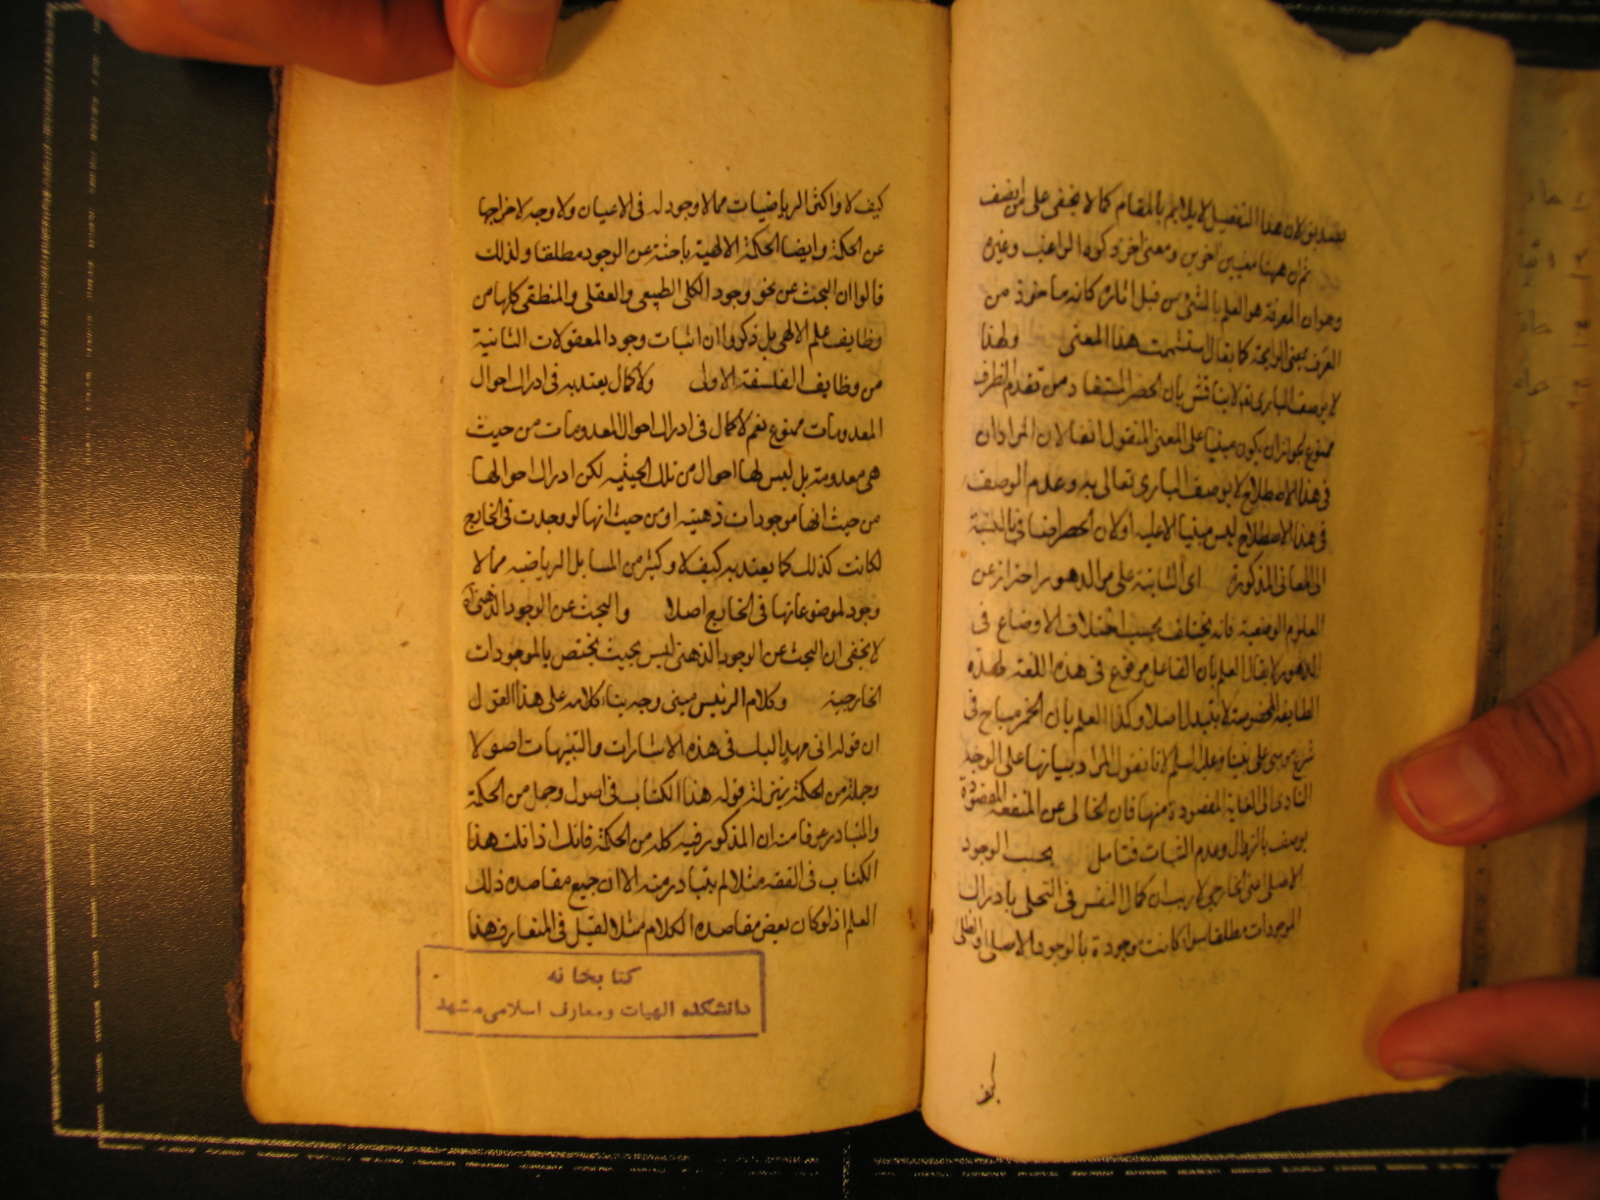 لان هذا التفصيل لا يلايم بالمقام كما لا يخفى على من انصف
ثم ان ههنا معنيين اخرين ومعنى اخر ذكره الراغب وغيره
وهو ان المعرفة هو العلم بالشئ من قبل اثاره كانه ماخوذ من
العرف بمعنى الرايحة كما يقال استشممت هذا المعنى ولهذا
لا يوصف البارى به لا يناقش بان الحصر المستفاد من تقدم الظرف
ممنوع لجواز ان يكون مبنيا على المعنى المنقول انفا لان المراد ان
فى هذا الاصطلاح لا يوصف البارى تعالى به وعدم الوصف
فى هذا الاصطلاح ليس مبنيا الا عليه اولان الحصر اضافى بالنسبة
الى المعانى المذكورة اى الثابتة على مر الدهور احتراز عن
العلوم الوضعية فانه يختلف بحسب اختلاف الاوضاع فى
الدهور لا يقال العلم بان الفاعل مرفوع فى هذه اللغة لهذه
الطايفة المخصوصة لا يتبدل اصلا وكذا العلم بان الخمر مباح فى
شرع موسى على نبينا وعليه السلم لانا نقول المراد بثباتها على الوجه
التادى الى الغاية المقصودة منها فان الخالى عن المنفعة المقصودة
يوصف بالزوال وعدم الثبات فتامل بحسب الوجود
الاصلى اعنى الخارجى لا ريب ان كمال النفس فى التحلى بادراك
الموجودات مطلقا سواء كانت موجودة بالوجود الاصلى او الظلى
كيف
كيف لا واكثر الرياضيات مما لا وجود له فى الاعيان ولا وجه لاخراجها
عن الحكمة وايضا الحكمة الالهية باحثة عن الوجود مطلقا ولذلك
قالوا ان البحث عن نحو وجود الكلى الطبيعى والعقلى والمنطقى كلها من
وظايف علم الالهى بل ذكروا ان اثبات وجود المعقولات الثانية
من وظايف الفلسفة الاولى ولا كمال يعتد به فى ادراك احوال
المعدومات ممنوع نعم لا كمال فى ادراك احوال المعدومات من حيث
هى معدومة بل ليس لها احوال من تلك الحيثية لكن ادراك احوالها
من حيث انها موجودات ذهنية او من حيث انها لو وجدت فى الخارج
لكانت كذلك كما يعتد به كيف لا وكثير من المسايل الرياضية مما لا
وجود لموضوعاتها فى الخارج اصلا والبحث عن الوجود الذهنى اه
لا يخفى ان البحث عن الوجود الذهنى ليس بحيث يختص بالموجودات
الخارجية وكلام الرئيس مبنى وجه بناء كلامه على هذا القول
ان قوله انى مهد اليك فى هذه الاشارات والتنبيهات اصولا
وجملا من الحكمة بمنزلة قوله هذا الكتاب فى اصول وجمل من الحكمة
والمتبادر عرفا منه ان المذكور فيه كله من الحكمة فانك اذا قلت هذا
الكتاب فى الفقه مثلا لم يتبادر منه الا ان جميع مقاصده ذلك
العلم اذ لو كان بعض مقاصده الكلام مثلا لقيل فى المتعارف هذا
كتابخانه
دانشكده الهيات ومعارف اسلامى مشهد